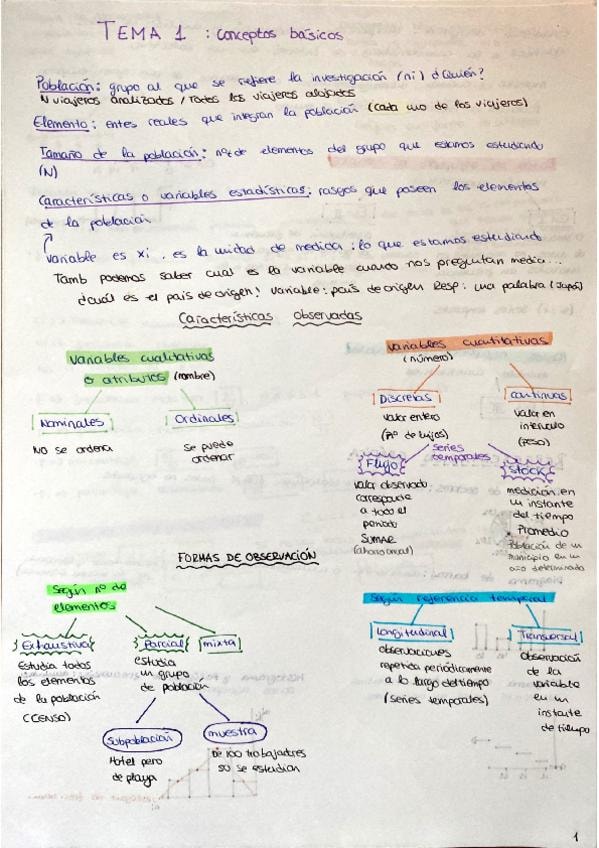 TEMA 1 : conceptos básicos
Población: grupo al que se refiere la investigación (ni) ¿Quién?
N viajeros analizados / Todos los viajeros alojados
Elemento: entes reales que integran la población (cada uno de los viajeros)
Tamaño de la población: nº de elementos del grupo que estamos estudiando
(N)
Características o variables estadísticas: rasgos que poseen los elementos
de la población
variable es xi . es la unidad de medida : lo que estamos estudiando
Tamb podemos saber cual es la variable cuando nos preguntan media...
¿cuál es el país de origen? variable: país de origen Resp: una palabra (Japó)
Características observadas
Variables cualitativas
o atributos (nombre)
Nominales
NO se ordena
Ordinales
Se puede
ordenar
Variables cuantitativas
(número)
Discretas
valor entero
(nº de hijos)
continuas
valor en
intervalo
(peso)
series
temporales
Flujo
valor observado
corresponde
a todo el
periodo
SUMAR
(ahorro anual)
Stock
medición en
un instante
del tiempo
Promedio
Población de un
municipio en un
año determinado
FORMAS DE OBSERVACIÓN
Según nº de
elementos
Exhaustiva
Estudia todos
los elementos
de la población
(CENSO)
Parcial
estudia
un grupo
de población
mixta
Subpoblación
Hotel pero
de playa
muestra
De 100 trabajadores
50 se estudian
Según referencia temporal
Longitudinal
observaciones
repetida periódicamente
a lo largo del tiempo
(series temporales)
Transversal
Observación
de la
variable
en un
instante
de tiempo
1